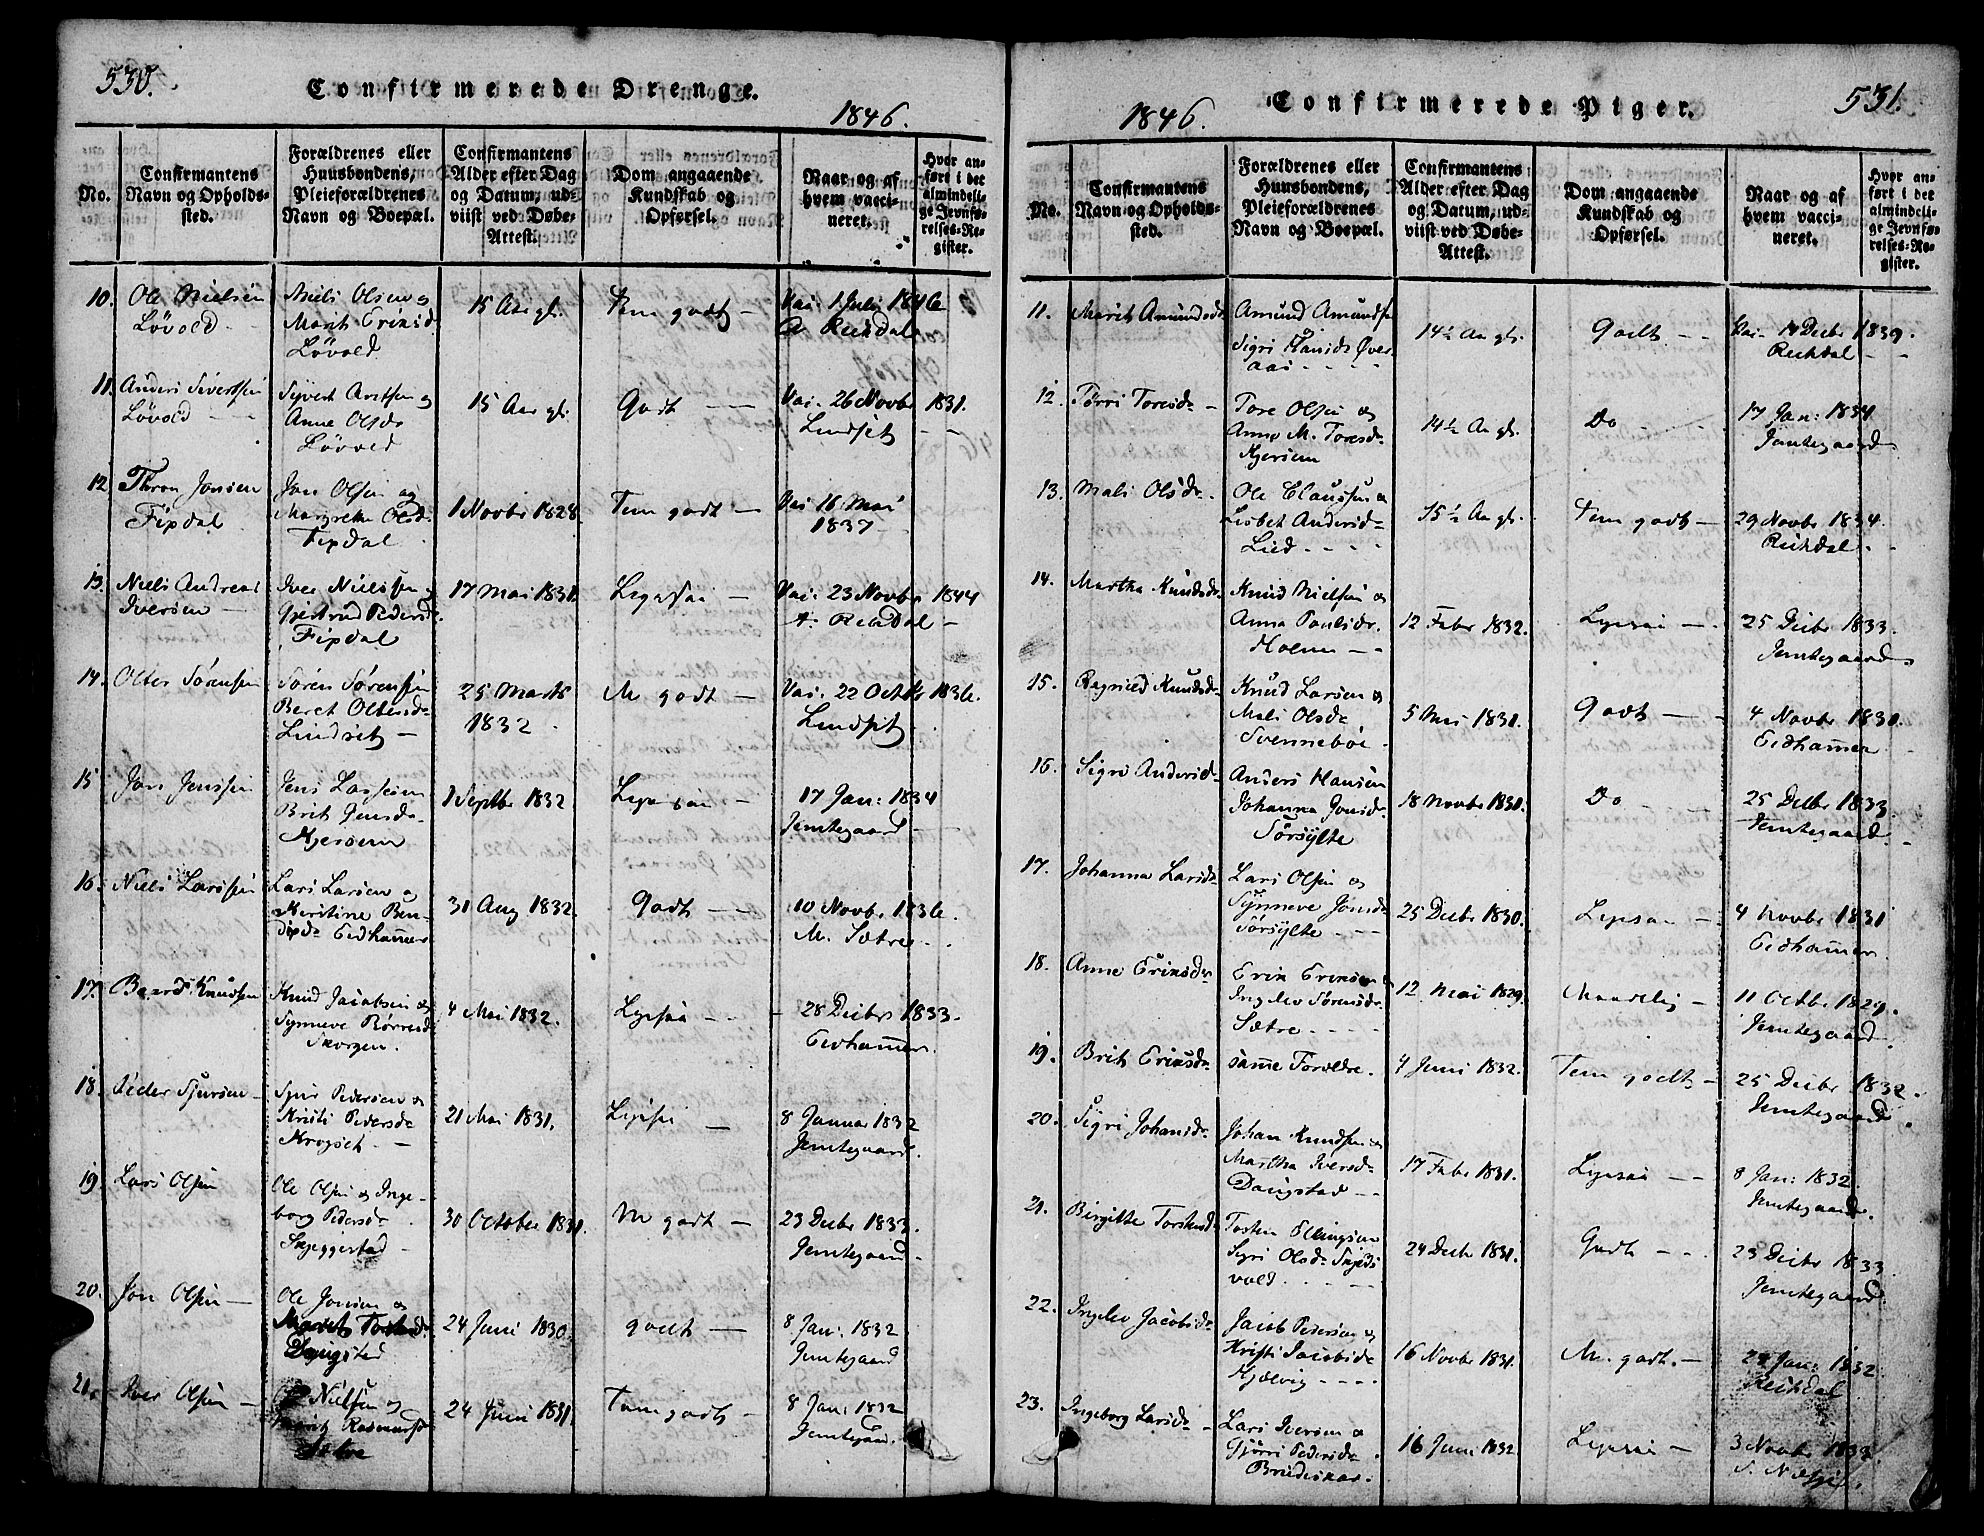 530.
Confirmerede Drenge.
1846.
No.
Confirmantens Navn og Opholdssted.
Forældrenes eller Huusbondens, Pleieforældrenes Navn og Boepæl.
Confirmantens Alder efter Dag og Datum, udviist ved Døbe-Attest.
Dom angaaende Kundskab og Opførsel.
Naar og af hvem vaccineret.
Hvor anført i det almindelige Jevnførelses-Register.
10. Ole Nielsen Løvold
Niels Olsen og Marit Eriksd Løvold
15 Aar gl.
Tem godt
Vac. 1 Juli 1846
A. Reisdal
11. Anders Sivertsen Løvold
Syvert Arntsen og Anne Olsd Løvold
15 Aar gl.
Godt
Vac. 26 Novbr 1831.
Lindset
12. Thron Jonsen Fixdal
Jon Olsen og Margrethe Olsd Fixdal
1 Novbr 1828.
Tem godt
Vac 16 Mai 1837
13. Niels Andreas Iversen
Iver Nielssen og Gjertrud Pedersd Fixdal
17 Mai 1831.
Vac. 23 Novbr 1844
14. Søren Sørensen Beret Lindset
25 Marts 1832
M godt
Vac. 22 Octbr 1836.
Lindset
15 Jon Jenssen
Jens Larssen Brit Jensd Kjersem
1 Septbr 1832
17 Jan: 1834
Jemtegaard
16. Niels Larssen
Lars Larsen og Kirstine Eidhammer
31 Aug 1832.
Godt
10 Novbr 1836.
M. Sætre
17. Baard Knudsen
Knud Jacobsen og Synneve Børresd Skorgen.
4 Mai 1832.
28 Decbr 1833.
Eidhammer.
18. Peder Sjursen
Sjur Pedersen og Kristi Pedersd Krogset
21 Mai 1831.
8 Januar 1832
Jemtegaard.
19. Lars Olsen
Ole Olsen og Ingeborg Pedersd Skjeggestad
30 October 1831.
M godt
23 Decbr 1833.
Jemtegaard
20. Jon Olsen
Ole Jonsen og Marit Daugstad
24 Juni 1830.
godt
8 Jan: 1832
Jemtegaard
21. Iver Olsen
Nielsen og Marit
24 Juni 1831.
Tem godt
8 Jan: 1832
Jemtegaard.
1846.
Confirmerede Piger.
531.
No.
Confirmantens Navn og Opholdssted.
Forældrenes eller Huusbondens, Pleieforældrenes Navn og Boepæl.
Confirmantens Alder efter Dag og Datum, udviist ved Døbe-Attest.
Dom angaaende Kundskab og Opførsel.
Naar og af hvem vaccineret.
Hvor anført i det almindelige Jevnførelses-Register.
11. Marit Amundsd
Amund Amundsen Sigri Hansd Øveraas
14½ Aar gl.
Godt
Vac. 14 Decbr 1839.
Reisdal
12. Torri Toresd
Tore Olsen og Anne M. Toresd Kjersem
14½ Aar gl.
Do
17 Jan: 1834
Jemtegaard
13. Mali Olsd
Ole Claussen og Lisbet Andersd Lied
15½ Aar gl.
Tem godt
29 Novbr 1834.
Reisdal
14. Martha Knudsd
Knud Nielsen og Anna Paulsd. Holm
12 Febr 1832.
25 Decbr 1833.
Jemtegaard
15. Ragnild Knudsd
Knud Larsen og Mali Olsd Svennebøe
5 Mai 1831.
Godt
4 Novbr 1831.
Eidhammer
16. Sigri Andersd
Anders Hansen Johanna Jonsd Sørsylte
18 Novbr 1831.
Do
25 Decbr 1833
Jemtegaard
17. Johanna Larsd
Lars Olsen og Synneve Jonsd Sørsylte
25 Decbr 1830.
4 Novbr 1831
Eidhammer
18. Anne Eriksd
Erik Eriksen og Ingelev Sørensd Sætre
12 Mai 1829.
Maadelig
11 Octbr 1829.
Jemtegaard
19. Brit Eriksd
samme Foreldre.
4 Juni 1832.
Tem godt
25 Decbr 1832.
Jemtegaard
20. Sigri Johansd
Johan Knudsen og Martha Iversd Daugstad
17 Febr 1831.
8 Jan: 1832.
Jemtegaard.
21. Birgitte Torstensd
Torsten Ellingsen Sigri Olsd
24 Decb 1831.
Godt
23 Decbr 1833
Jemtegaard.
22. Ingelev Jacobsd
Jacob Pedersen og Kristi Jacobsd Hjelvig
16 Novbr 1831.
M. godt.
24 Jan: 1832
Reisdal
23. Ingeborg Larsd
Lars Iversen og Gjørri Pedersd
16 Juni 1832
3 Novbr 1833